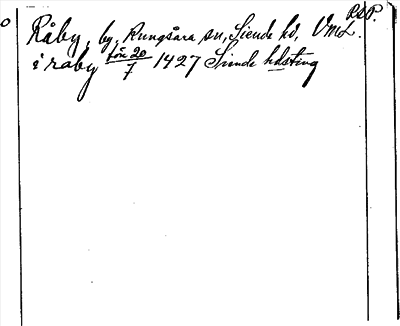 RSP.
Råby, by, Rungsåra sn, Siende hd, VmL.
i raby fön 20/7 1427 Siende hdsting